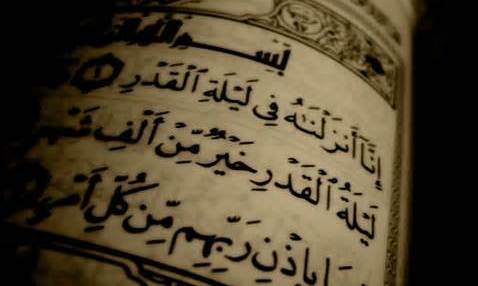 بِسْمِ ٱللَّهِ
إِنَّآ أَنزَلْنَٰهُ فِى لَيْلَةِ ٱلْقَدْرِ ١
لَيْلَةُ ٱلْقَدْرِ خَيْرٌ مِّنْ أَلْفِ شَهْ
ا بِإِذْنِ رَبِّهِم مِّن كُلِّ أَمْرٍ